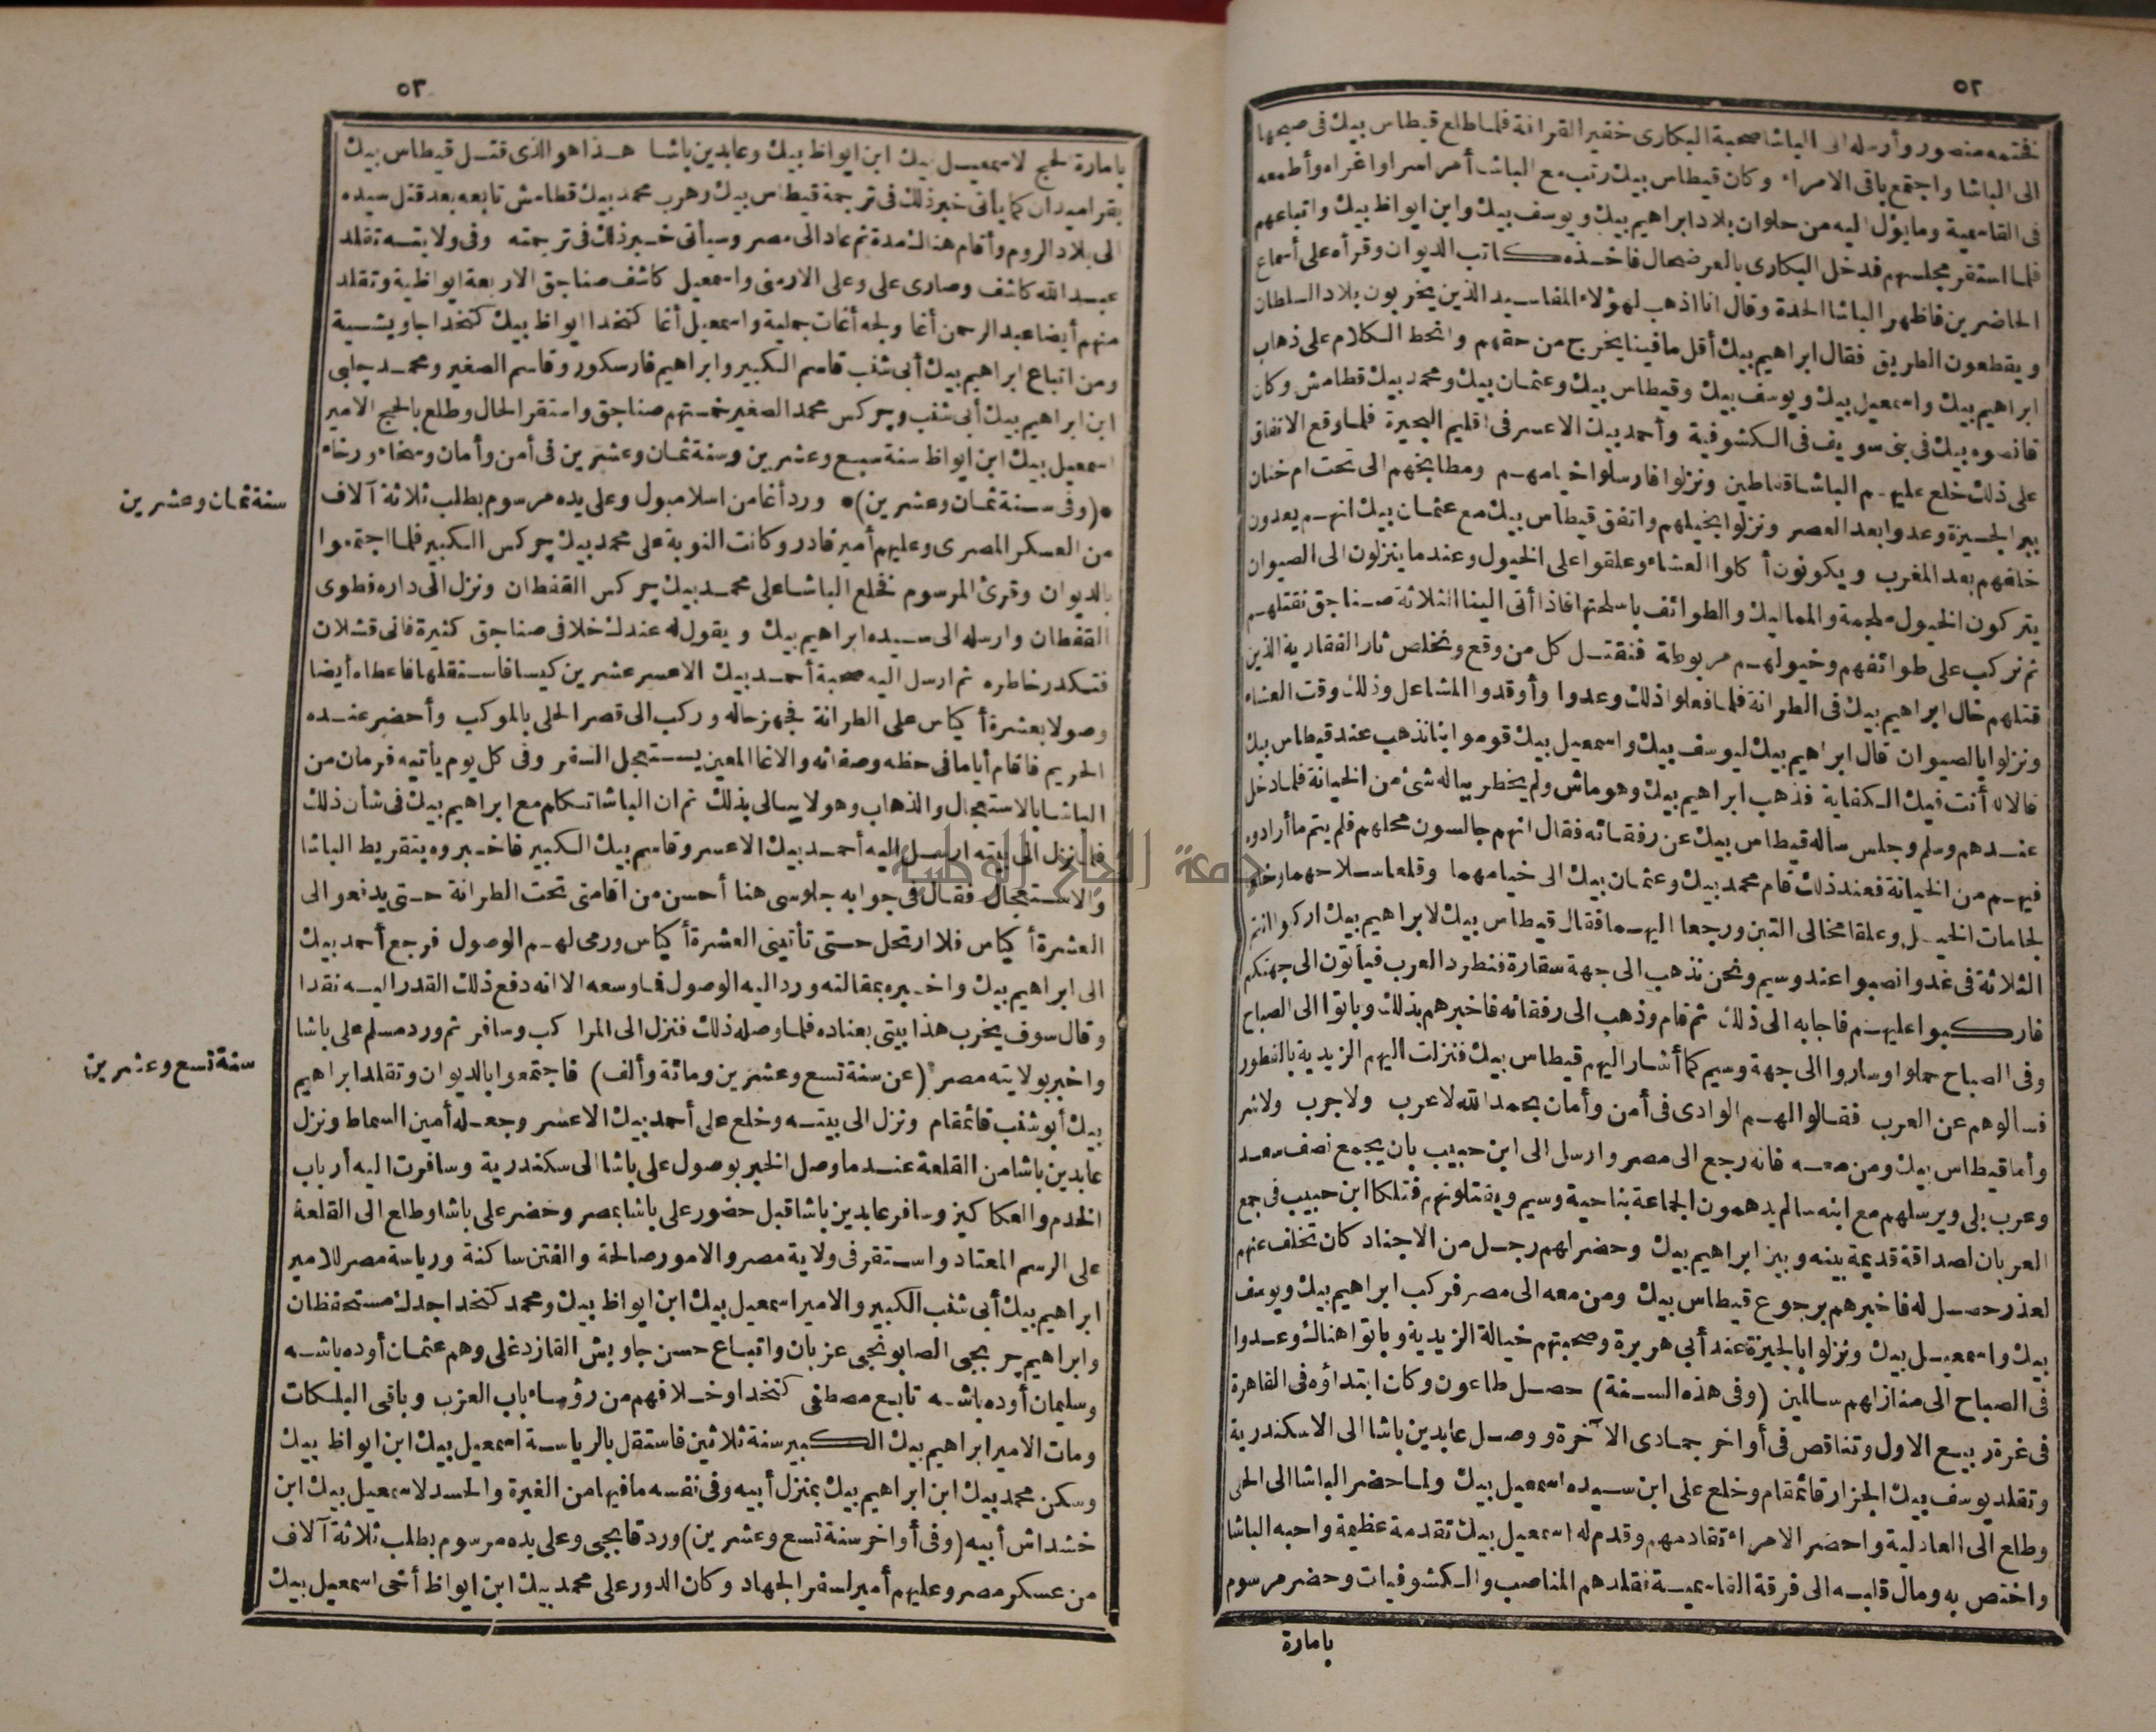 ٥٢
فختمه منصور وأرسله الى الباشا صحبة البكارى خفير القرافة فلما طلع قيطاس بيك فى صبحها
الى الباشا واجتمع باقى الامراء وكان قيطاس بيك رتب مع الباشا أمرا سرا واغراه وأطمعه
فى القاسمية وما يؤل اليه من حلوان بلاد ابراهيم بيك ويوسف بيك وابن ايواظ بيك واتباعهم
فلما استقر مجلسهم قد دخل البكارى بالعرضحال فاخذه كاتب الديوان وقرأه على أسماع
الحاضرين فاظهر الباشا الحدة وقال انا اذهب لهؤلاء المفاسيد الذين يخربون بلاد السلطان
ويقطعون الطريق فقال ابراهيم بيك أقل ما فينا يخرج من حقهم وانحط الكلام على ذهاب
ابراهيم بيك واسمعيل بيك ويوسف بيك وقيطاس بيك وعثمان بيك ومحمد بيك قطامش وكان
قانصوه بيك فى بنى سويف فى الكشوفية وأحمد بيك الاعسر فى اقليم البحيرة فلما وقع الاتفاق
على ذلك خلع عليهم الباشا قفاطين ونزلوا فارسلوا خيامهم ومطابخهم الى تحت ام خنان
ببر الجيزة وعدوا بعد العصر ونزلوا بخيلهم واتفق قيطاس بيك مع عثمان بيك انهم يعدون
خلفهم بعد المغرب ويكونون أكلوا العشاء وعلقوا على الخيول وعندما ينزلون الى الصيوان
يتركون الخيول ملجمة والمماليك والطوائف باسلحتها فاذا أتى الينا الثلاثة صناجق نقتلهم
ثم نركب على طوائفهم وخيولهم مربوطة فنقتل كل من وقع ونخلص ثار الفقارية الذين
قتلهم خال ابراهيم بيك فى الطرانة فلما فعلوا ذلك وعدوا وأوقدوا المشاعل وذلك وقت العشاء
ونزلوا بالصيوان قال ابراهيم بيك ليوسف بيك واسمعيل بيك قوموا بنا نذهب عند قيطاس بيك
قالا له أنت فيك الكفاية فذهب ابراهيم بيك وهو ماش ولم يخطر بباله شئ من الخيانة فلما دخل
عندهم وسلم وجلس سأله قيطاس بيك عن رفقائه فقال انهم جالسون محلهم فلم يتم ما أرادوه
فيهم من الخيانة فعند ذلك قام محمد بيك وعثمان بيك الى خيامهما وقلعا سلاحهما وخلعا
لجامات الخيل وعلقا مخالى التبن ورجعا اليهما فقال قيطاس بيك لابراهيم بيك اركبوا انتم
الثلاثة فى غد وانصبوا عند وسيم ونحن نذهب الى جهة سقارة فنطرد العرب فيأتون الى جهتكم
فاركبوا عليهم فاجابه الى ذلك ثم قام وذهب الى رفقائه فاخبرهم بذلك وباتوا الى الصباح
وفى الصباح حملوا وساروا الى جهة وسيم كما أشار اليهم قيطاس بيك فنزلت اليهم الزيدية بالفطور
فسالوهم عن العرب فقالوا لهم الوادى فى أمن وأمان بحمد الله لا عرب ولا حرب ولا شر
وأما قيطاس بيك ومن معه فانه رجع الى مصر وارسل الى ابن حبيب بان يجمع نصف سعد
وعرب بلى ويرسلهم مع ابنه سالم يدهمون الجماعة بناحية وسيم ويقتلونهم فتلكا ابن حبيب فى جمع
العربان لصداقة قديمة بينه وبين ابراهيم بيك وحضر لهم رجل من الاجناد كان تخلف عنهم
لعذر حصل له فاخبرهم برجوع قيطاس بيك ومن معه الى مصر فركب ابراهيم بيك ويوسف
بيك واسمعيل بيك ونزلوا بالجيزة عند أبى هريرة وصحبتهم خيالة الزيدية وباتوا هناك وعدوا
فى الصباح الى منازلهم سالمين (وفى هذه السنة) حصل طاعون وكان ابتداؤه فى القاهرة
فى غرة ربيع الاول وتناقص فى أواخر جمادى الآخرة ووصل عابدين باشا الى الاسكندرية
وتقلد يوسف بيك الجزار قائمقام وخلع على ابن سيده اسمعيل بيك ولما حضر الباشا الى الحلى
وطلع الى العادلية واحضر الامراء تقادمهم وقدم له اسمعيل بيك تقدمة عظيمة واحبه الباشا
واختص به ومال قلبه الى فرقة القاسمية فقلدهم المناصب والكشوفيات وحضر مرسوم
بامارة
٥٣
بامارة الحج لاسمعيل بيك ابن ايواظ بيك وعابدين باشا هذا هو الذى قتل قيطاس بيك
بقراميدان كما يأتى خبر ذلك فى ترجمة قيطاس بيك وهرب محمد بيك قطامش تابعه بعد قتل سيده
الى بلاد الروم وأقام هناك مدة ثم عاد الى مصر وسيأتى خبر ذلك فى ترجمته وفى ولايته تقلد
عبد الله كاشف وصارى على وعلى الارمنى واسمعيل كاشف صناجق الاربعة ايواظية وتقلد
منهم أيضا عبد الرحمن أغا ولجه أغات جملية واسمعيل أغا كتخدا ايواظ بيك كتخدا جاويشية
ومن اتباع ابراهيم بيك أبى شنب قاسم الكبير وابراهيم فارسكور وقاسم الصغير ومحمد جلبى
ابن ابراهيم بيك أبى شنب وجركس محمد الصغير خمستهم صناجق واستقر الحال وطلع بالحج الامير
اسمعيل بيك ابن ايواظ سنة سبع وعشرين وسنة ثمان وعشرين فى أمن وأمان وسخاء ورخاء
سنة ثمان وعشرين
*(وفى سنة ثمان وعشرين)* ورد أغا من اسلامبول وعلى يده مرسوم بطلب ثلاثة آلاف
من العسكر المصرى وعليهم أمير قادر وكانت النوبة على محمد بيك جركس الكبير فلما اجتمعوا
بالديوان وقرئ المرسوم فخلع الباشا على محمد بيك جركس القفطان ونزل الى داره فطوى
القفطان وارسله الى سيده ابراهيم بيك ويقول له عندك خلافى صناجق كثيرة فانى قشلان
فتكدر خاطره ثم ارسل اليه صحبة أحمد بيك الاعسر عشرين كيسا فاستقلها فاعطاه أيضا
وصولا بعشرة أكياس على الطرانة فجهز حاله وركب الى قصر الحلى بالموكب وأحضر عنده
الحريم فاقام أياما فى حظه وصفائه والاغا المعين يستعجل السفر وفى كل يوم يأتيه فرمان من
الباشا بالاستعجال والذهاب وهو لا يبالى بذلك ثم ان الباشا تكلم مع ابراهيم بيك فى شأن ذلك
فلما نزل الى بيته ارسل اليه أحمد بيك الاعسر وقاسم بيك الكبير فاخبروه بتقريط الباشا
والاستعجال فقال فى جوابه جلوسى هنا أحسن من اقامتى تحت الطرانة حتى يدفعوا الى
العشرة أكياس فلا ارتحل حتى تأتينى العشرة أكياس ورمى لهم الوصول فرجع أحمد بيك
الى ابراهيم بيك واخبره بمقالته ورد اليه الوصول فما وسعه الا انه دفع ذلك القدر اليه نقدا
وقال سوف يخرب هذا بيتى بعناده فلما وصله ذلك فنزل الى المراكب وسافر ثم ورد مسلم على باشا
سنة تسع وعشرين
واخبر بولايته مصر (عن سنة تسع وعشرين ومائة وألف) فاجتمعوا بالديوان وتقلد ابراهيم
بيك أبو شنب قائمقام ونزل الى بيته وخلع على أحمد بيك الاعسر وجعله أمين السماط ونزل
عابدين باشا من القلعة عندما وصل الخبر بوصول على باشا الى سكندرية وسافرت اليه أرباب
الخدم والعكاكيز وسافر عابدين باشا قبل حضور على باشا بمصر وحضر على باشا وطلع الى القلعة
على الرسم المعتاد واستقر فى ولاية مصر والامور صالحة والفتن ساكنة ورياسة مصر للامير
ابراهيم بيك أبى شنب الكبير والامير اسمعيل بيك ابن ايواظ بيك ومحمد كتخدا جدك مستحفظان
وابراهيم جربجى الصابونجى عزبان واتباع حسن جاويش القازدغلى وهم عثمان أوده باشه
وسليمان أوده باشه تابع مصطفى كتخدا وخلافهم من رؤساء باب العزب وباقى البلكات
ومات الامير ابراهيم بيك الكبير سنة ثلاثين فاستقل بالرياسة اسمعيل بيك ابن ايواظ بيك
وسكن محمد بيك ابن ابراهيم بيك بمنزل أبيه وفى نفسه ما فيها من الغيرة والحسد لاسمعيل بيك ابن
خشداش أبيه (وفى أواخر سنة تسع وعشرين) ورد قابجى وعلى يده مرسوم بطلب ثلاثة آلاف
من عسكر مصر وعليهم أمير لسفر الجهاد وكان الدور على محمد بيك ابن ايواظ أخى اسمعيل بيك